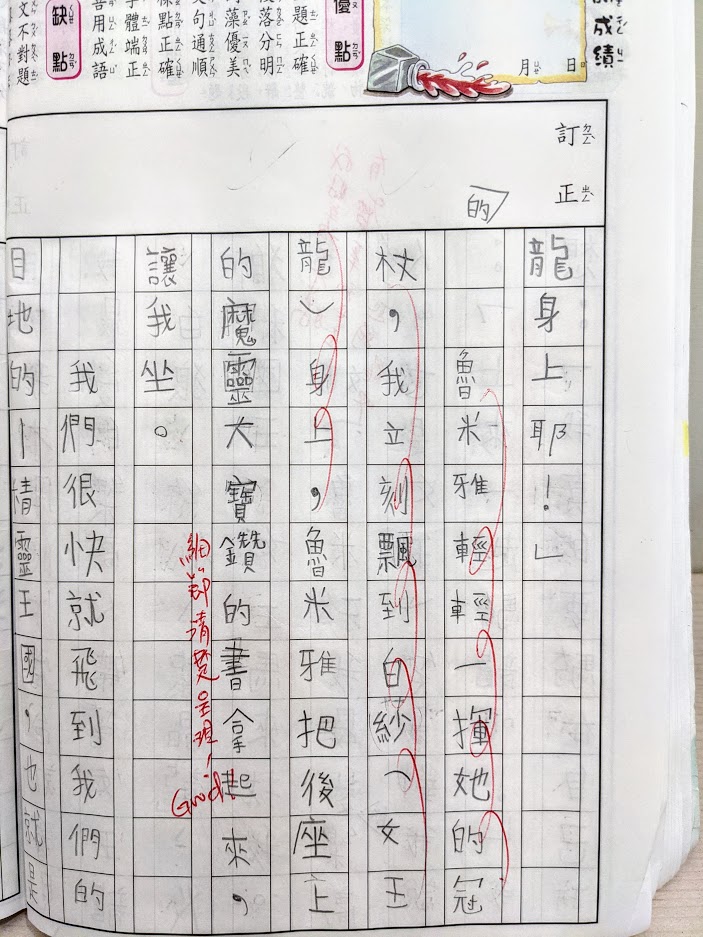 成績
月 日
優點
題正確
落分明
藻優美
句通順
點正確
體端正
用成語
缺點
文不對題
訂正
的
龍身上耶！」
魯米雅輕輕一揮她的冠
杖，我立刻飄到白紗（女王
龍）身上，魯米雅把後座上
的魔靈大寶鑽的書拿起來，
細節清楚呈現，Good!
讓我坐。
我們很快就飛到我們的
目地的—精靈王國，也就是